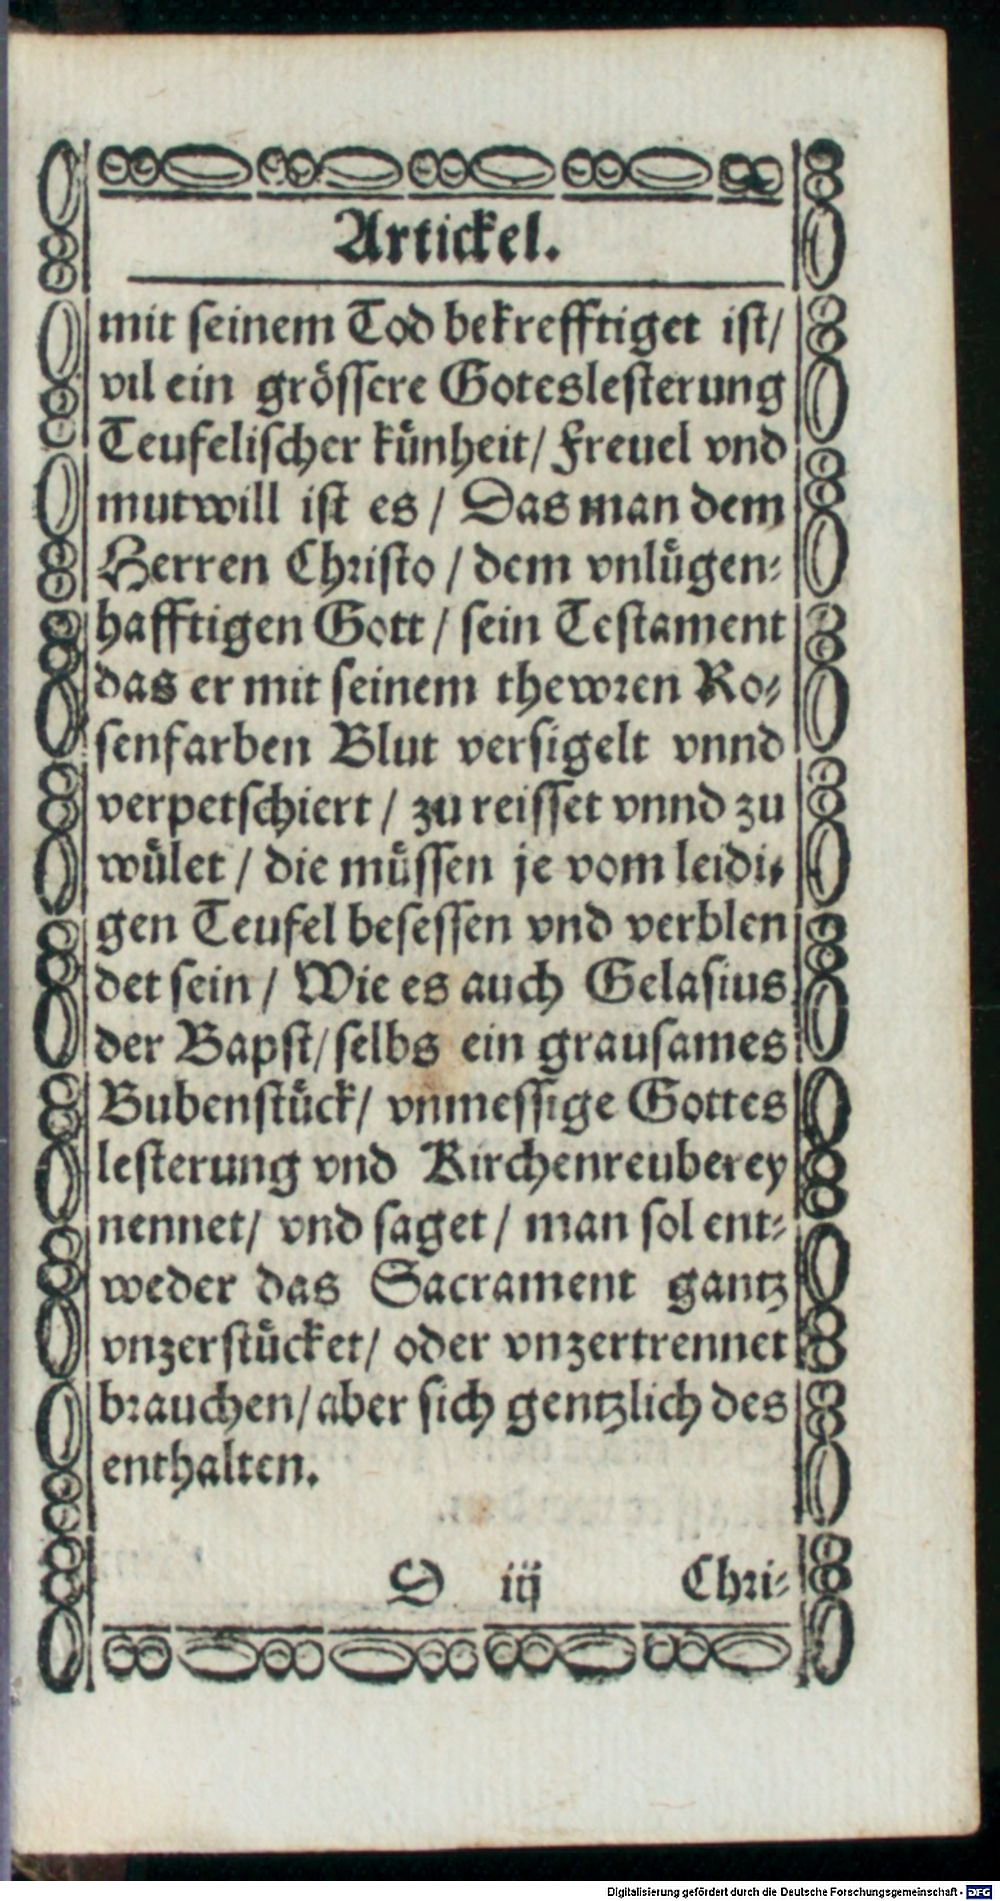 Artickel.
mit seinem Tod bekrefftiget ist/
vil ein grössere Goteslesterung
Teufelischer künheit/ Freuel vnd
mutwill ist es / Das man dem
Herren Christo / dem vnlügen-
hafftigen Gott / sein Testament
das er mit seinem thewren Ro-
senfarben Blut versigelt vnnd
verpetschiert / zu reisset vnnd zu
wület / die müssen je vom leidi-
gen Teufel besessen vnd verblen
det sein / Wie es auch Gelasius
der Bapst/ selbs ein grausames
Bubenstück/ vnmessige Gottes
lesterung vnd Kirchenreuberey
nennet/ vnd saget / man sol ent-
weder das Sacrament gantz
vnzerstücket/ oder vnzertrennet
brauchen/ aber sich gentzlich des
enthalten.
D iij Chri-
Digitalisierung gefördert durch die Deutsche Forschungsgemeinschaft - DFG